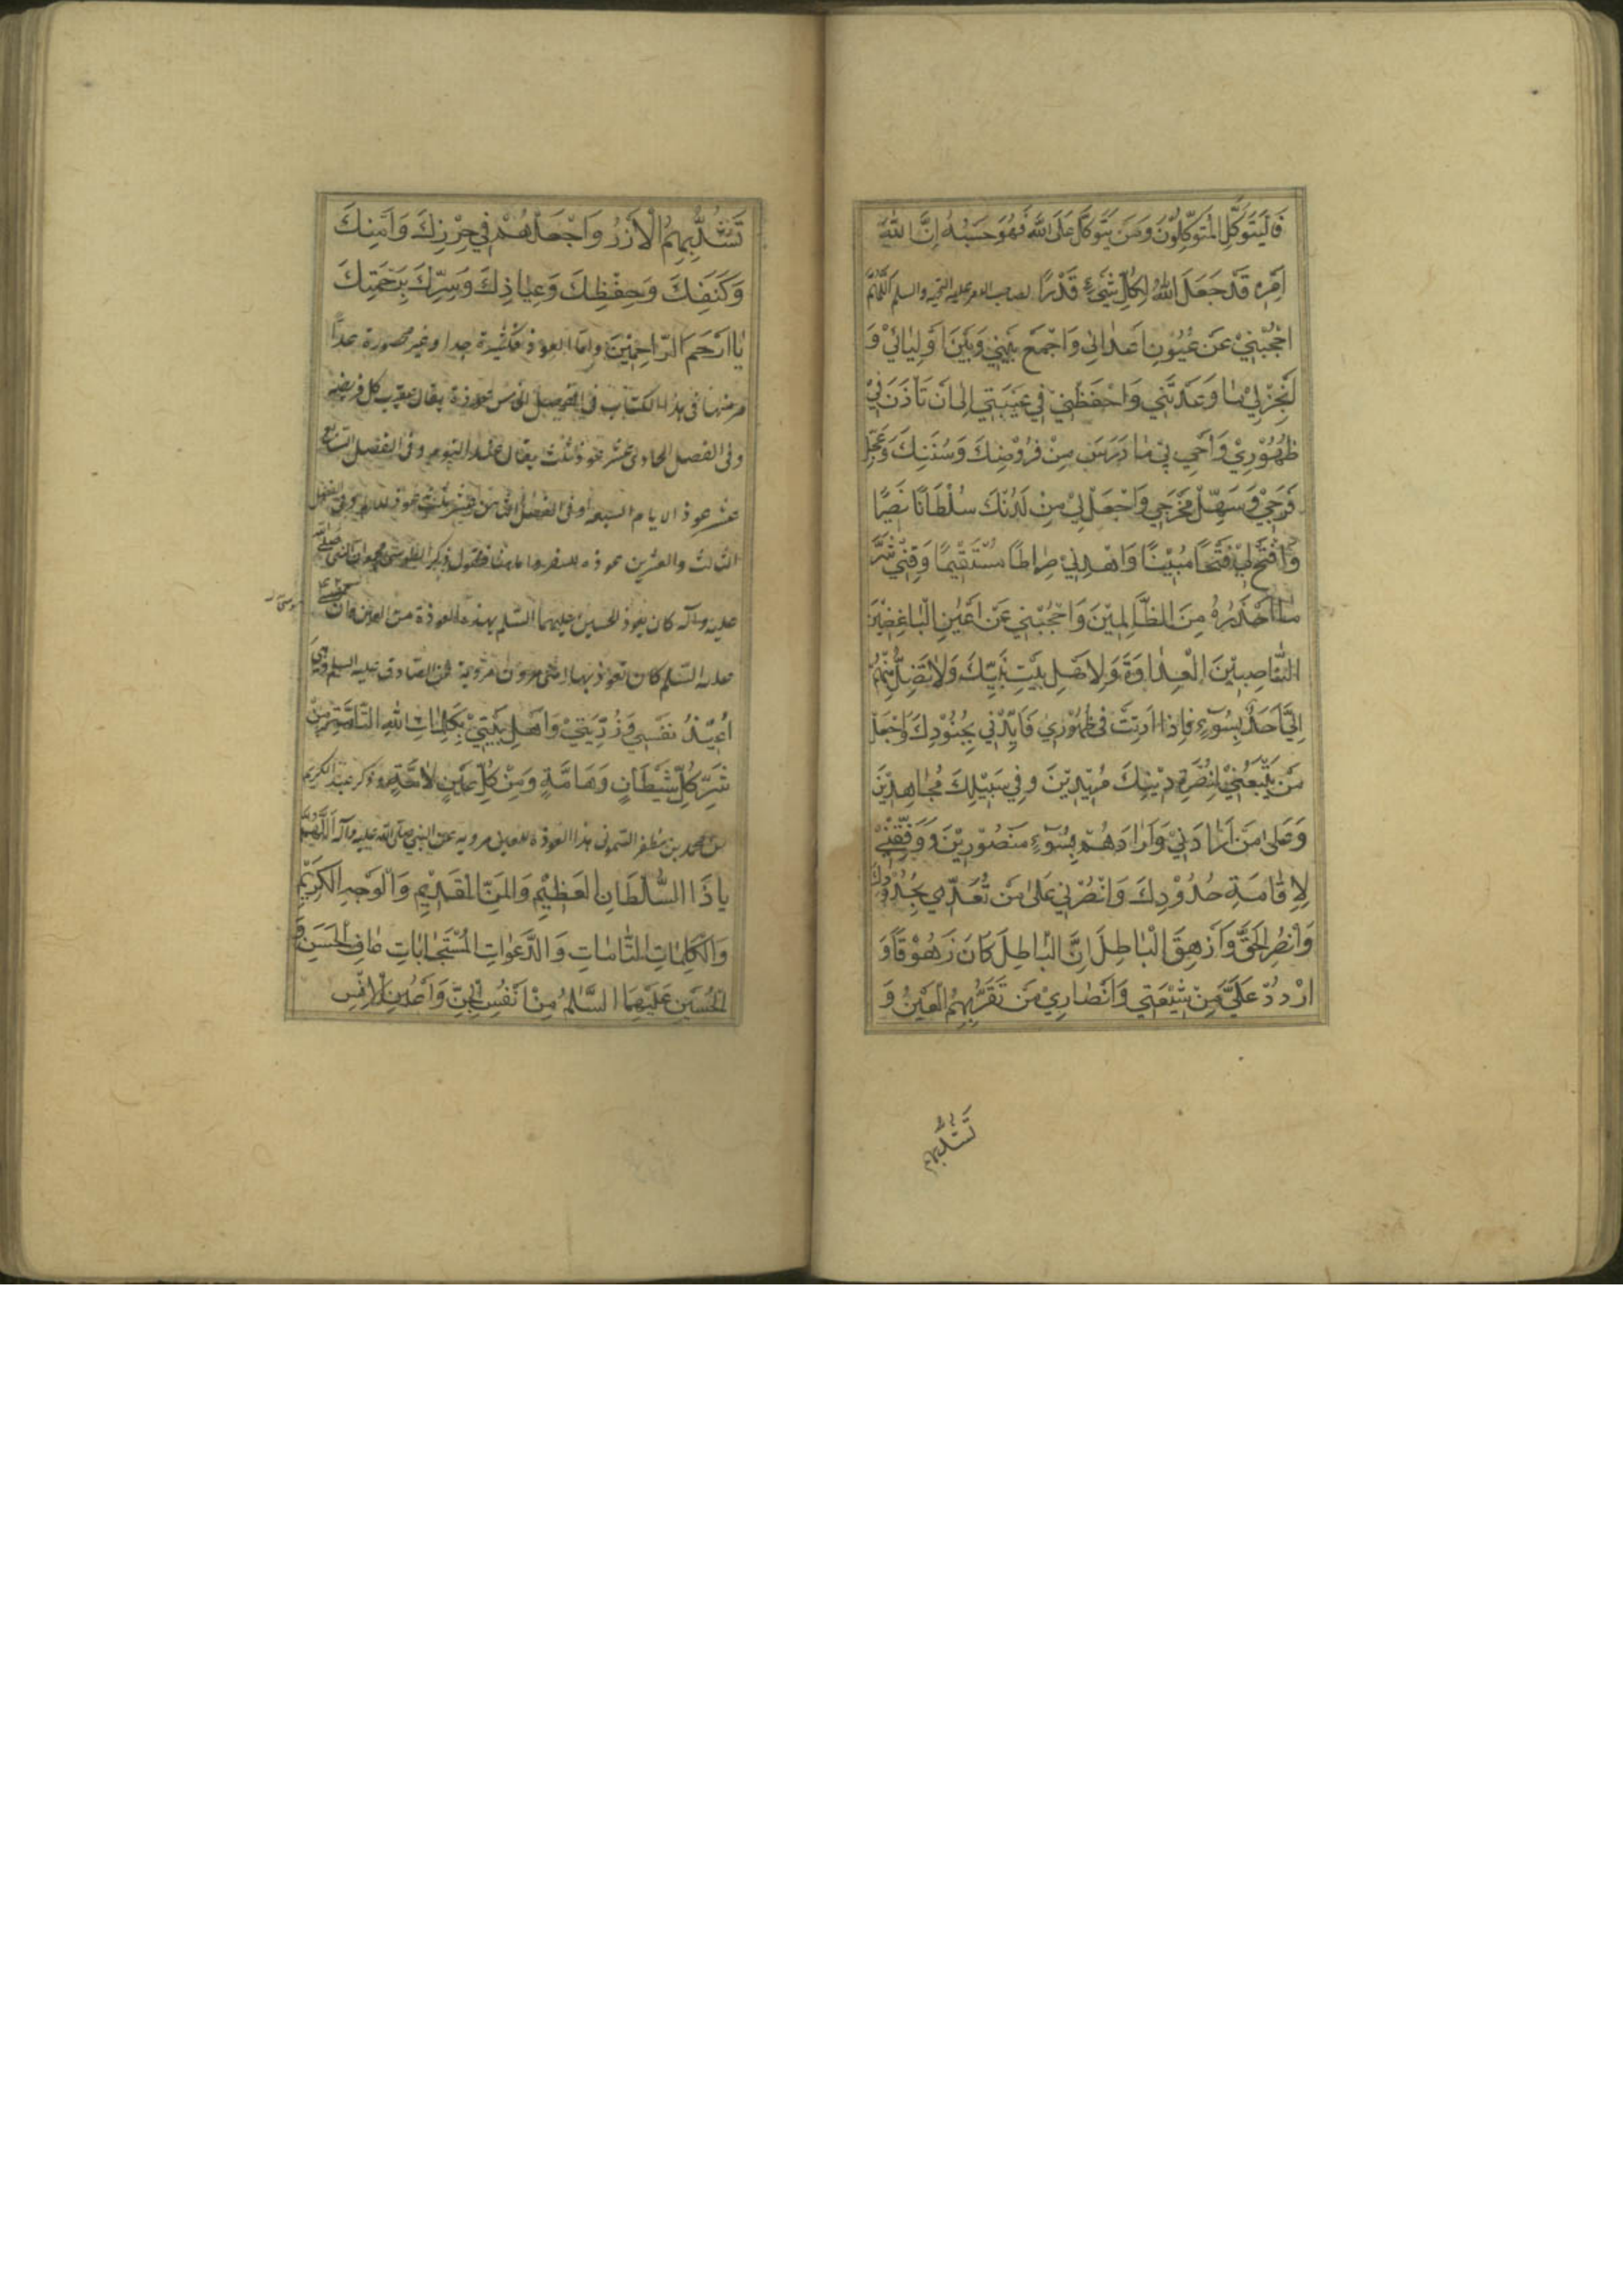 فَلْيَتَوَكَّلِ الْمُتَوَكِّلُوْنَ وَمَنْ يَتَوَكَّلْ عَلَى اللّٰهِ فَهُوَ حَسْبُهُ اِنَّ اللّٰهَ
اَمْرِهِ قَدْ جَعَلَ اللّٰهُ لِكُلِّ شَيْءٍ قَدْرًا لصاحب الامر عليه التحيه والسلم اَللّٰهُمَّ
احْجُبْنِيْ عَنْ عُيُوْنِ اَعْدَائِي وَاجْمَعْ بَيْنِي وَبَيْنَ اَوْلِيَائِيْ وَ
اَنْجِزْلِيْ مَا وَعَدْتَنِي وَاحْفَظْنِيْ فِي غَيْبَتِي اِلٰى اَنْ تَاْذَنَ فِيْ
ظُهُوْرِيْ وَاَحْيِ بِيْ مَا دَرَسَ مِنْ فُرُوْضِكَ وَسُنَنِكَ وَعَجِّلْ
فَرَجِيْ وَسَهِّلْ مَخْرَجِي وَاجْعَلْ لِيْ مِنْ لَدُنْكَ سُلْطَانًا نَصِيْرًا
وَافْتَحْ لِيْ فَتْحًا مُبِيْنًا وَاهْدِنِيْ صِرَاطًا مُسْتَقِيْمًا وَقِنِيْ شَرَّ
مَا اُحَاذِرُهُ مِنَ الظَّالِمِيْنَ وَاحْجُبْنِي عَنْ اَعْيُنِ الْبَاغِضِيْنَ
النَّاصِبِيْنَ الْعِدَاوَةَ لِاَهْلِ بَيْتِ نَبِيِّكَ وَلَا يَصِلُ مِنْهُمْ
اِلَيَّ اَحَدٌ بِسُوْءٍ فَاِذَا اَذِنْتَ فِي ظُهُوْرِي فَاَيِّدْنِي بِجُنُوْدِكَ وَاجْعَلْ
مَنْ يَتْبَعُنِيْ لِنُصْرَةِ دِيْنِكَ مُؤَيَّدِيْنَ وَفِي سَبِيْلِكَ مُجَاهِدِيْنَ
وَعَلٰى مَنْ اَرَادَنِيْ وَاَرَادَهُمْ بِسُوْءٍ مَنْصُوْرِيْنَ وَوَفِّقْنِيْ
لِاِقَامَةِ حُدُوْدِكَ وَانْصُرْنِي عَلٰى مَنْ تَعَدّٰى حُدُوْدَكَ
وَانْصُرِ الْحَقَّ وَاَزْهِقِ الْبَاطِلَ اِنَّ الْبَاطِلَ كَانَ زَهُوْقًا وَ
اَرْدِدْ عَلَيَّ مِنْ شِيْعَتِي وَاَنْصَارِيْ مَنْ تَقَرُّ بِهِمُ الْعَيْنُ وَ
تَشُدُّ بِهِمُ
تَشُدُّ بِهِمُ الْاَزْرُ وَاجْعَلْهُمْ فِي حِرْزِكَ وَاَمْنِكَ
وَكَنَفِكَ وَحِفْظِكَ وَعِيَاذِكَ وَسِتْرِكَ بِرَحْمَتِكَ
يَا اَرْحَمَ الرَّاحِمِيْنَ واما العوذ فكثيرة جدا وغير محصورة عدا
منها فى هذا الكتاب فى الفصل الخامس عوذة يقال عقيب كل فريضة
وفى الفصل الحادى عشر عوذ ثلث يقال عند النوم وفى الفصل السابع
عشر عوذ الايام السبعة وفى الفصل
الثالث والعشرين عوذة للسفر واما هنا فنقول ذكر
عليه وآله كان يعوذ الحسين عليهما السلم بهذه العوذة من العين وان
عليه السلم كان يعوذ بها مروية عن الصادق عليه السلم وهي
اُعِيْذُ نَفْسِي وَذُرِّيَّتِيْ وَاَهْلَ بَيْتِيْ بِكَلِمَاتِ اللّٰهِ التَّامَّةِ مِنْ
شَرِّ كُلِّ شَيْطَانٍ وَهَامَّةٍ وَمِنْ كُلِّ عَيْنٍ لَامَّةٍ وذكر عبد الكريم
بن محمد بن مظفر السمعانى هذه العوذة للعين مروية عن النبي صلى الله عليه وآله اَللّٰهُمَّ
يَا ذَا السُّلْطَانِ الْعَظِيْمِ وَالْمَنِّ الْقَدِيْمِ وَالْوَجْهِ الْكَرِيْمِ
وَالْكَلِمَاتِ التَّامَّاتِ وَالدَّعَوَاتِ الْمُسْتَجَابَاتِ عَافِ الْحَسَنَ وَ
الْحُسَيْنَ عَلَيْهِمَا السَّلٰمُ مِنْ اَنْفُسِ الْجِنِّ وَاَعْيُنِ الْاِنْسِ